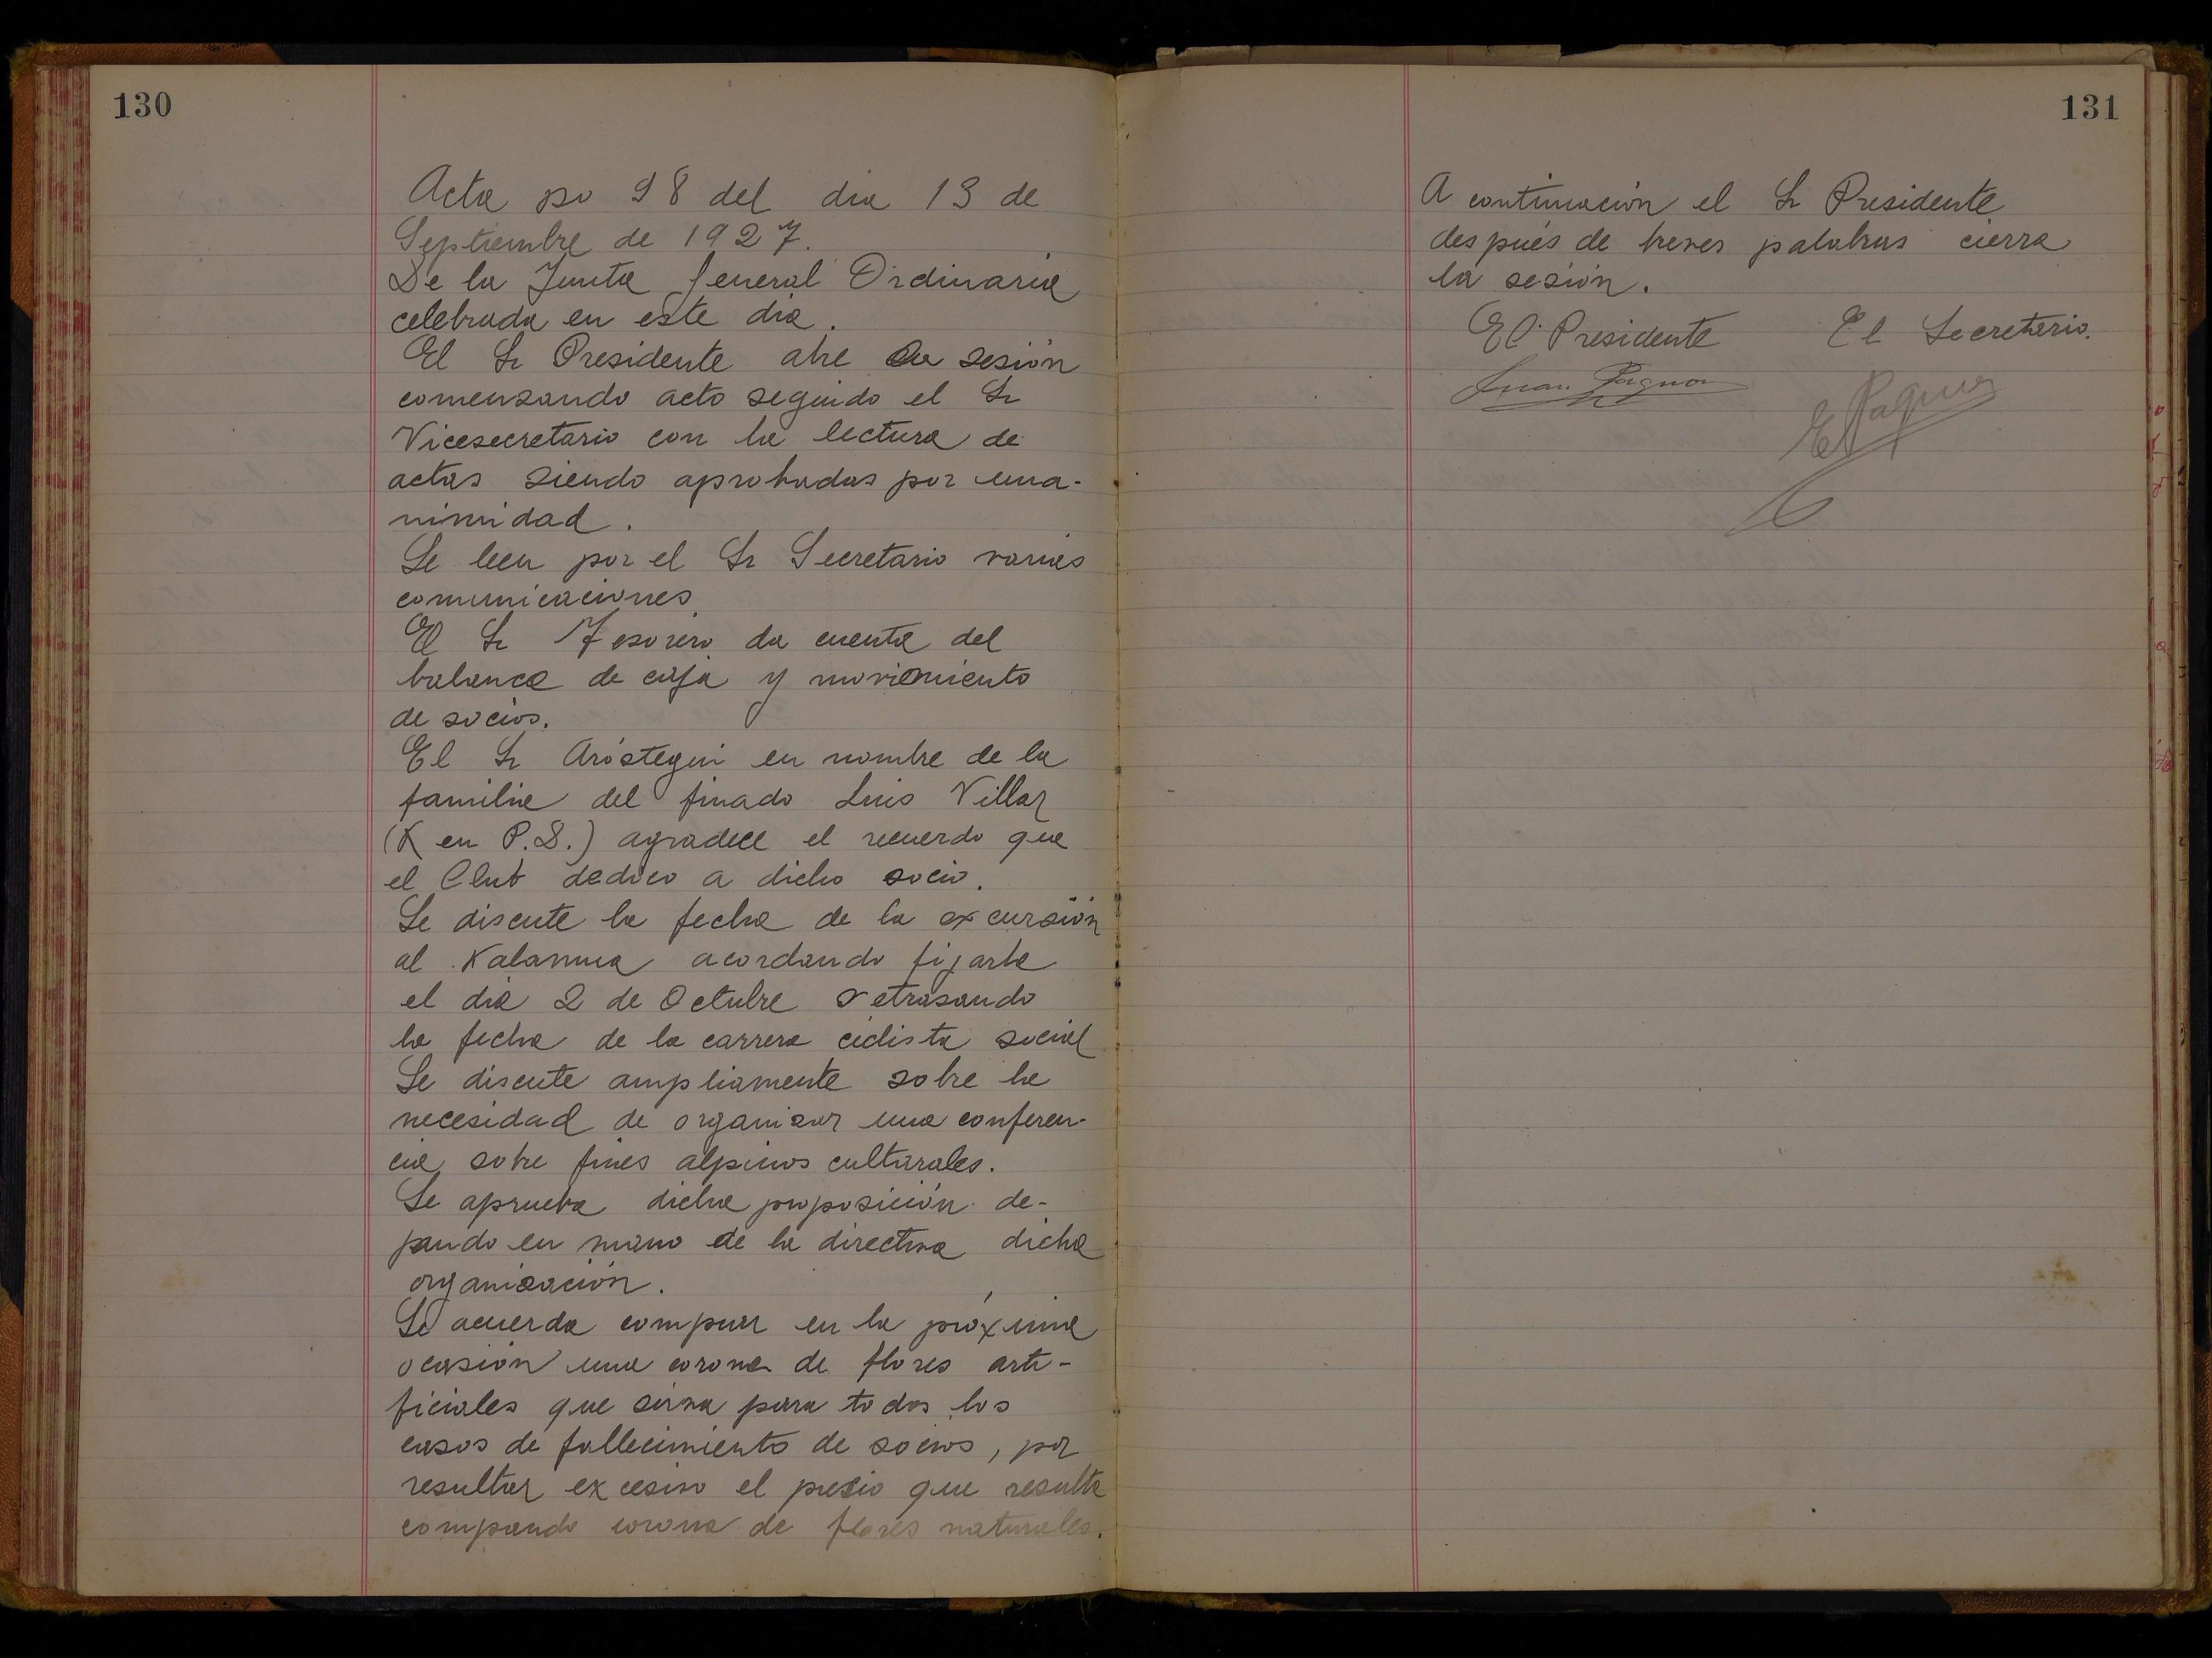 130
Acta no 98 del dia 13 de
Septiembre de 1927.
De la Junta general Ordinaria
celebrada en este dia.
El Sr Presidente abre la sesión
comenzando acto seguido el Sr
Vicesecretario con la lectura de
actas siendo aprobadas por una-
nimidad.
Se leen por el Sr Secretario varias
comunicaciones.
El Sr Tesorero da cuenta del
balance de caja y movimiento
de socios.
El Sr Aróstegui en nombre de la
familia del finado Luis Villar
(K en P.D.) agradece el recuerdo que
el Club dedico a dicho socio.
Se discute la fecha de la excursión
al Kalamua acordando fijarla
el dia 2 de Octubre retrasando
la fecha de la carrera ciclista social
Se discute ampliamente sobre la
necesidad de organizar una conferen-
cia sobre fines alpinos culturales.
Se aprueba dicha proposición de-
jando en mano de la directiva dicha
organización.
Se acuerda comprar en la próxima
ocasión una corona de flores arti-
ficiales que sirva para todos los
casos de fallecimiento de socios, por
resultar excesivo el precio que resulta
comprando corona de flores naturales.
131
A continuación el Sr Presidente
después de breves palabras cierra
la sesión.
El Presidente El Secretario.
Juan